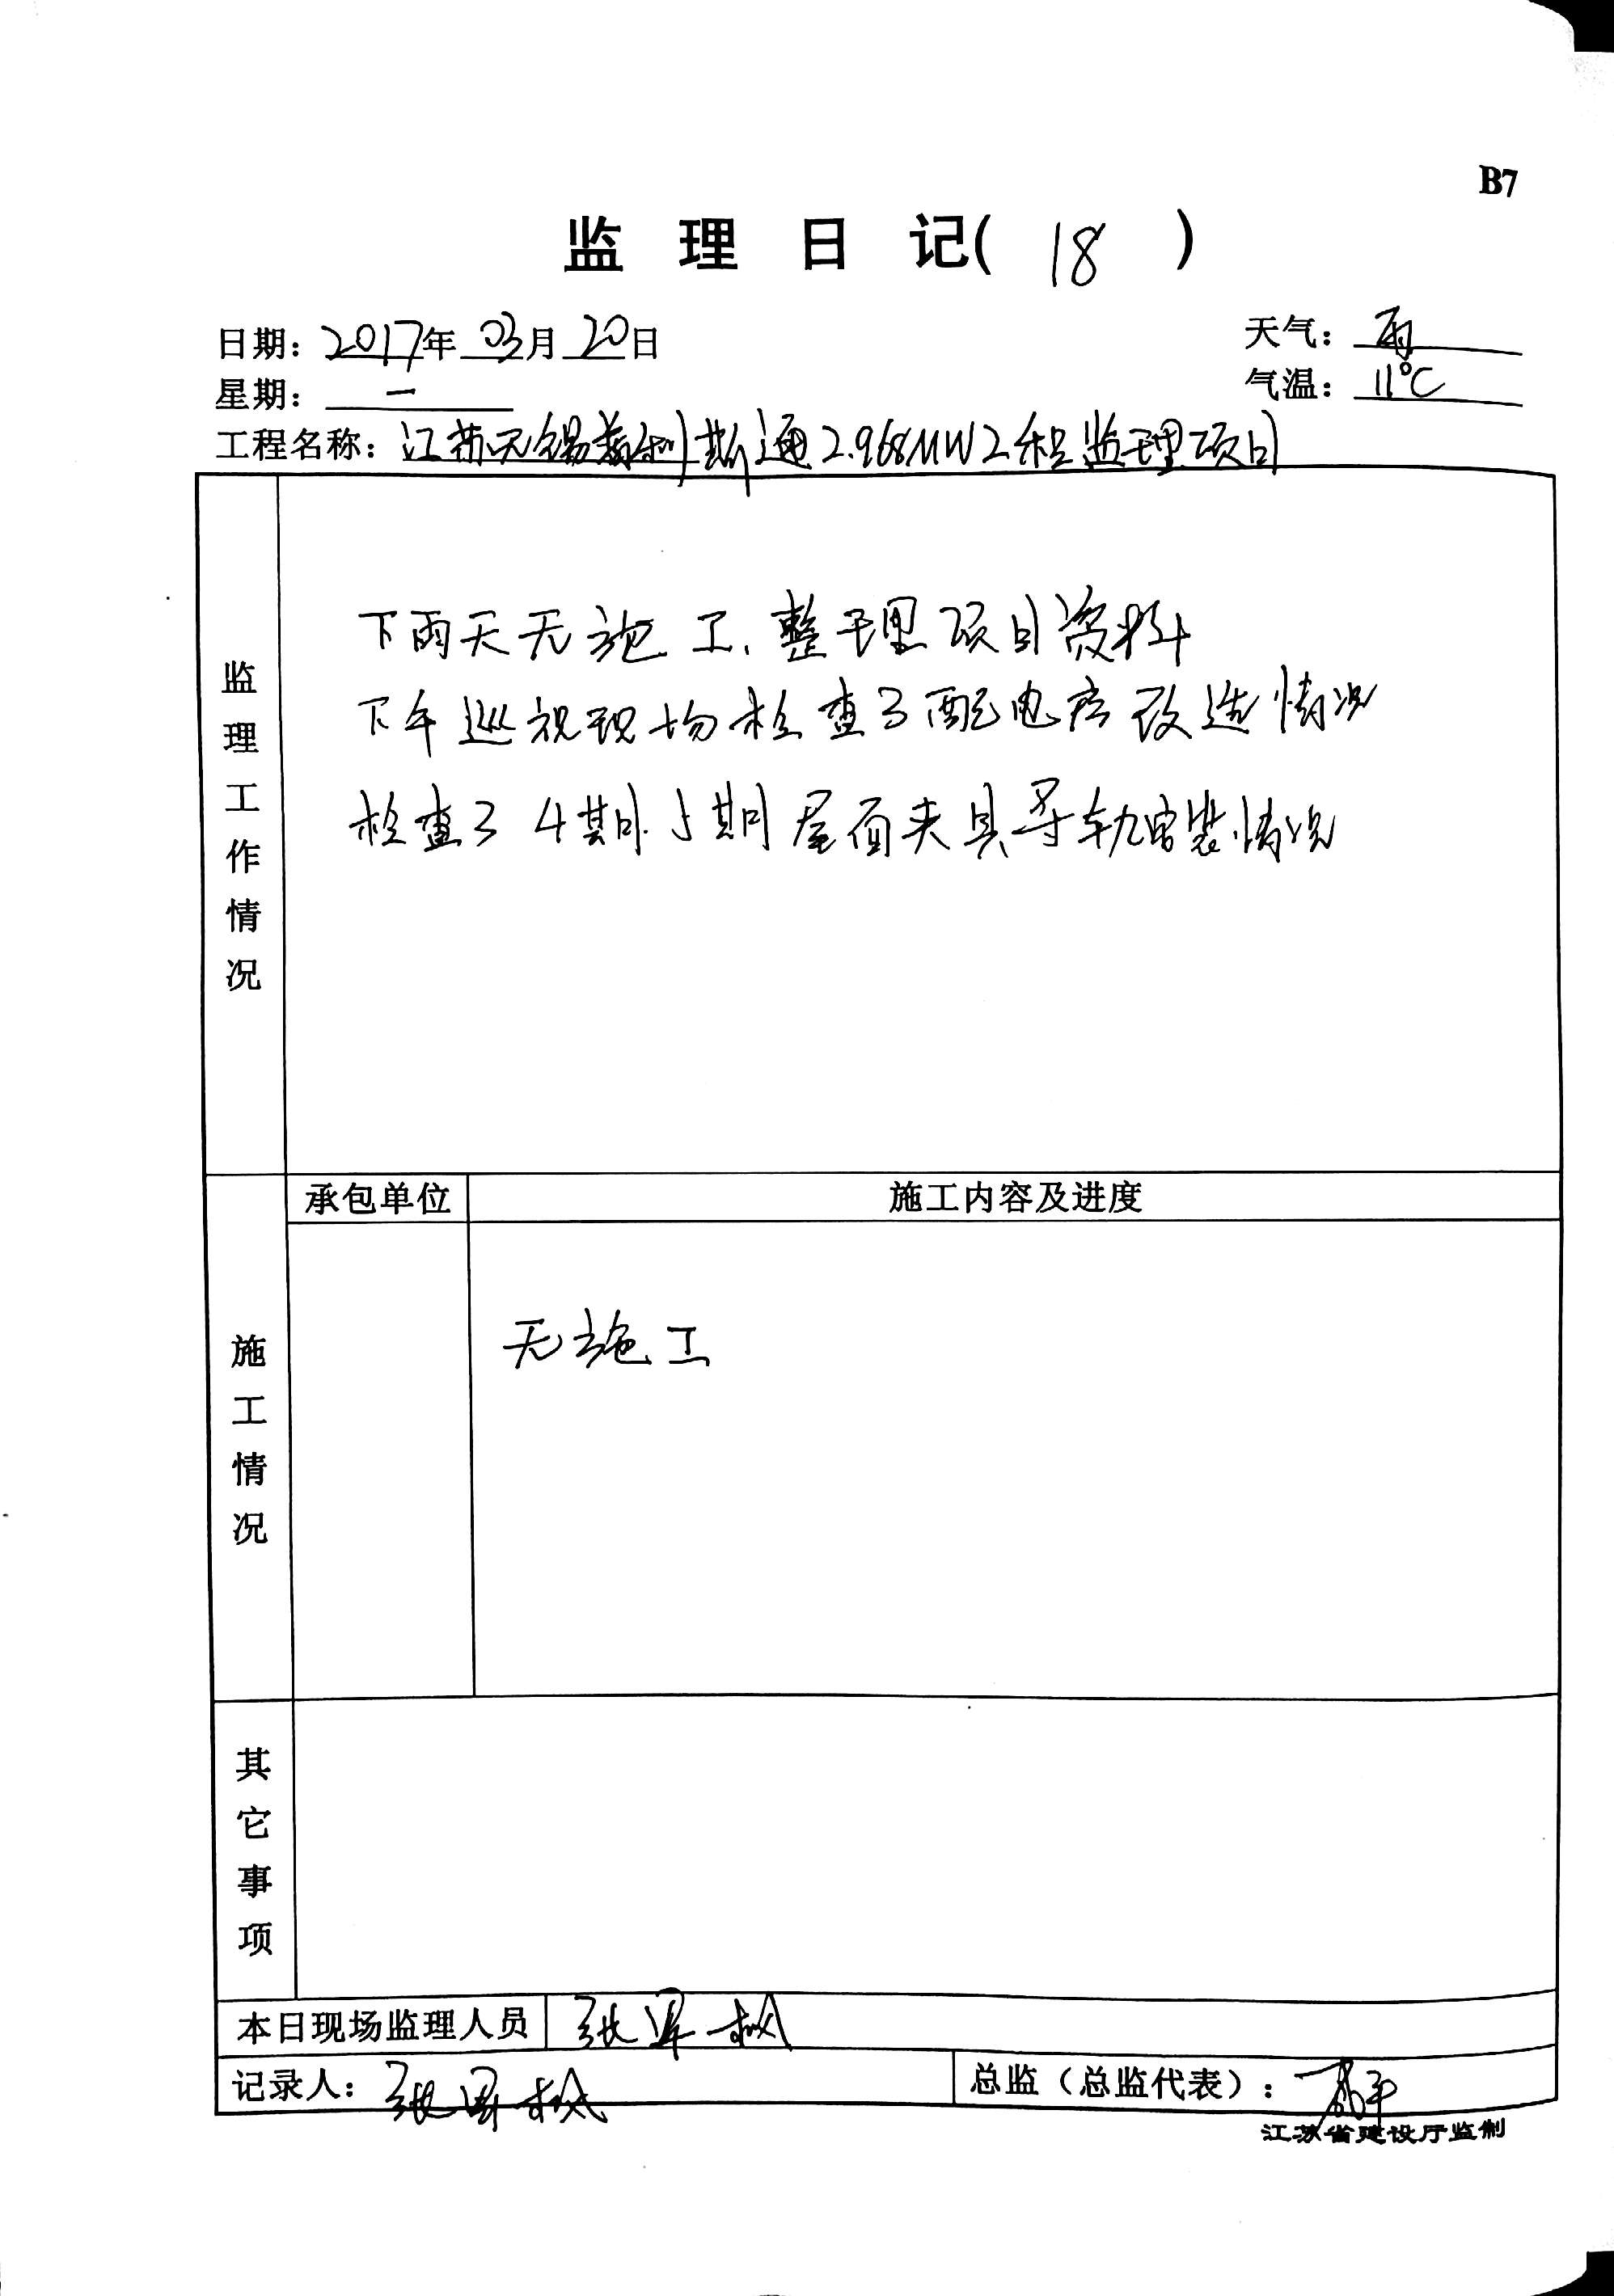 B7
监理日记(18)
日期：2017年03月20日
天气：雨
星期：一
气温：11℃
工程名称：江苏无锡利斯通2.968MW工程监理项目
监理工作情况
下雨天无施工、整理项目资料
下午巡视现场检查了配电房改造情况
检查了4期、5期屋面夹具导轨安装情况
承包单位
施工内容及进度
施工情况
无施工
其它事项
本日现场监理人员
记录人：
总监（总监代表）：
江苏省建设厅监制